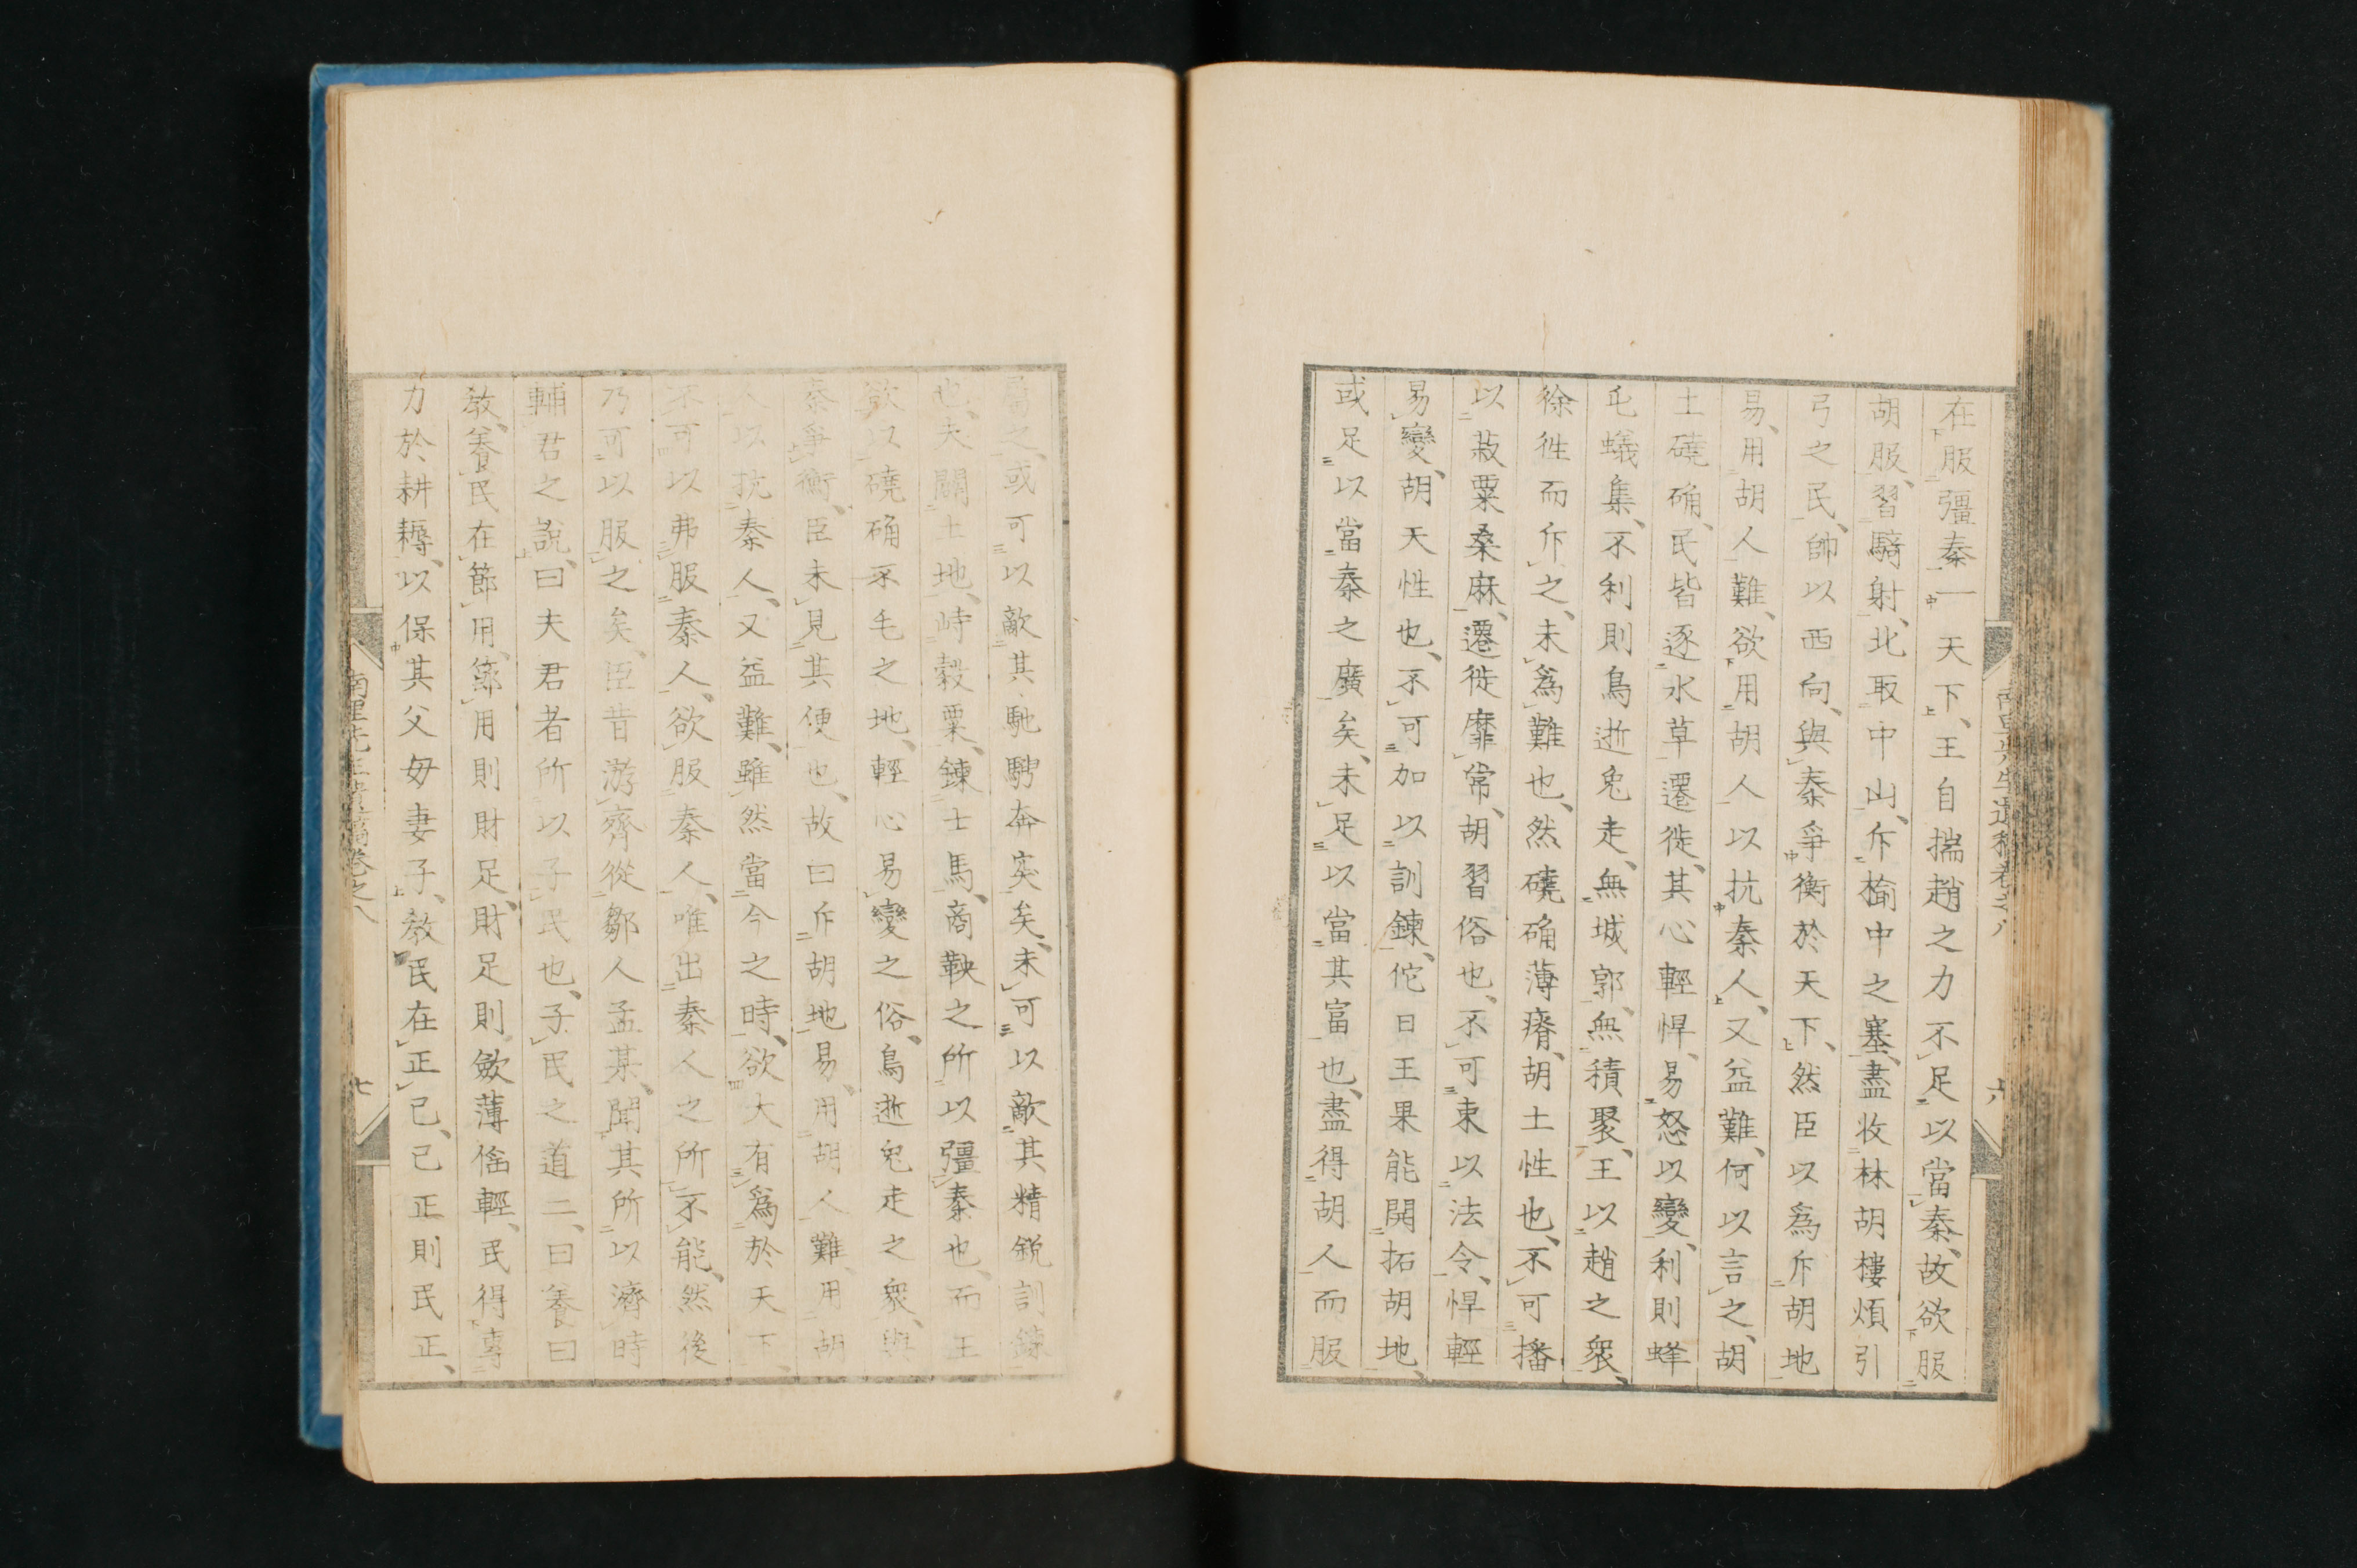 在服彊秦一天下、王自揣趙之力不足以當秦、故欲服
胡服、習騎射、北取中山、斥楡中之塞、盡收林胡樓煩引
弓之民、帥以西向、與秦爭衡於天下、然臣以爲斥胡地
易、用胡人難、欲用胡人以抗秦人、又益難、何以言之、胡
土磽确、民皆逐水草遷徙、其心輕悍、易怒以變、利則蜂
屯蟻集、不利則鳥逝兔走、無城郭、無積聚、王以趙之衆、
徐徃而斥之、未爲難也、然磽确薄瘠、胡土性也、不可播
以菽粟桑麻、遷徙靡常、胡習俗也、不可束以法令、悍輕
易變、胡天性也、不可加以訓鍊、佗日王果能開拓胡地、
或足以當秦之廣矣、未足以當其富也、盡得胡人而服
屬之、或可以敵其馳騁奔突矣、未可以敵其精鋭訓鍊
也、夫闢土地、峙穀粟、鍊士馬、商鞅之所以彊秦也、而王
欲以磽确不毛之地、輕心易變之俗、鳥逝兔走之衆、與
秦爭衡、臣未見其便也、故曰斥胡地易、用胡人難、用胡
人以抗秦人、又益難、雖然當今之時、欲大有爲於天下、
不可以弗服秦人、欲服秦人、唯出秦人之所不能、然後
乃可以服之矣、臣昔游齊從鄒人孟某、聞其所以濟時
輔君之説、曰夫君者所以子民也、子民之道二、曰養曰
敎、養民在節用、節用則財足、財足則斂薄徭輕、民得專
力於耕耨、以保其父毋妻子、敎民在正已、已正則民正、